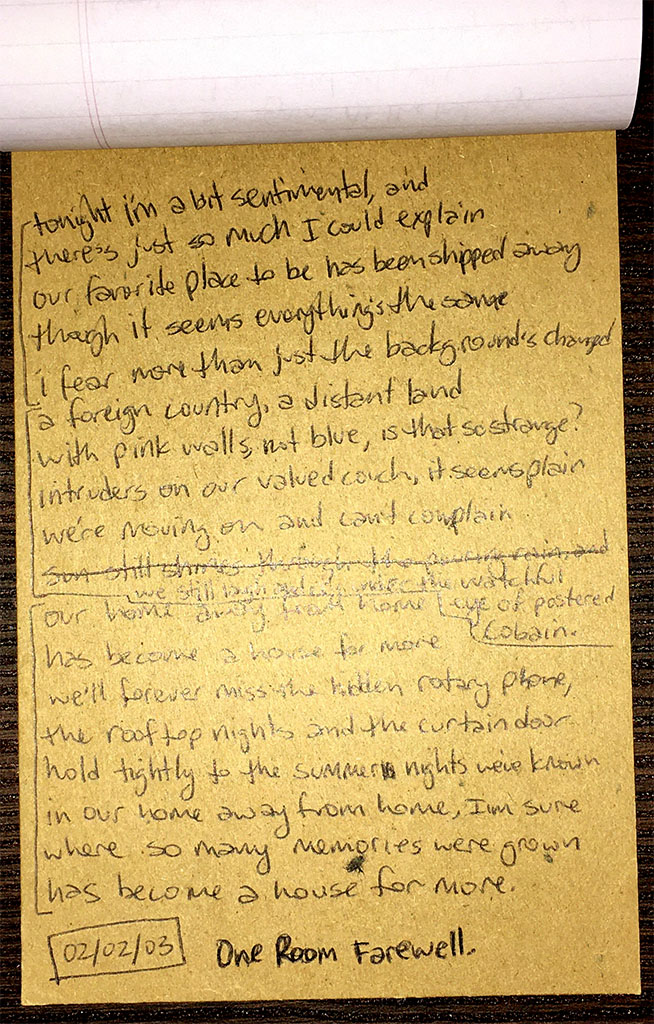 tonight i'm a bit sentimental, and
there's just so much I could explain
our favorite place to be has been shipped away
though it seems everything's the same
i fear more than just the background's changed
a foreign country, a distant land
with pink walls, not blue, is that so strange?
intruders on our valued couch, it seems plain
we're moving on and can't complain
sun still shines through the pouring rain, and
we still laugh under the watchful
eye of postered
cobain.
our home away from home
has become a house for more
we'll forever miss the hidden rotary phone,
the rooftop nights and the curtain door
hold tightly to the summer nights we've known
in our home away from home, I'm sure
where so many memories were grown
has become a house for more.
02/02/03 One Room Farewell.